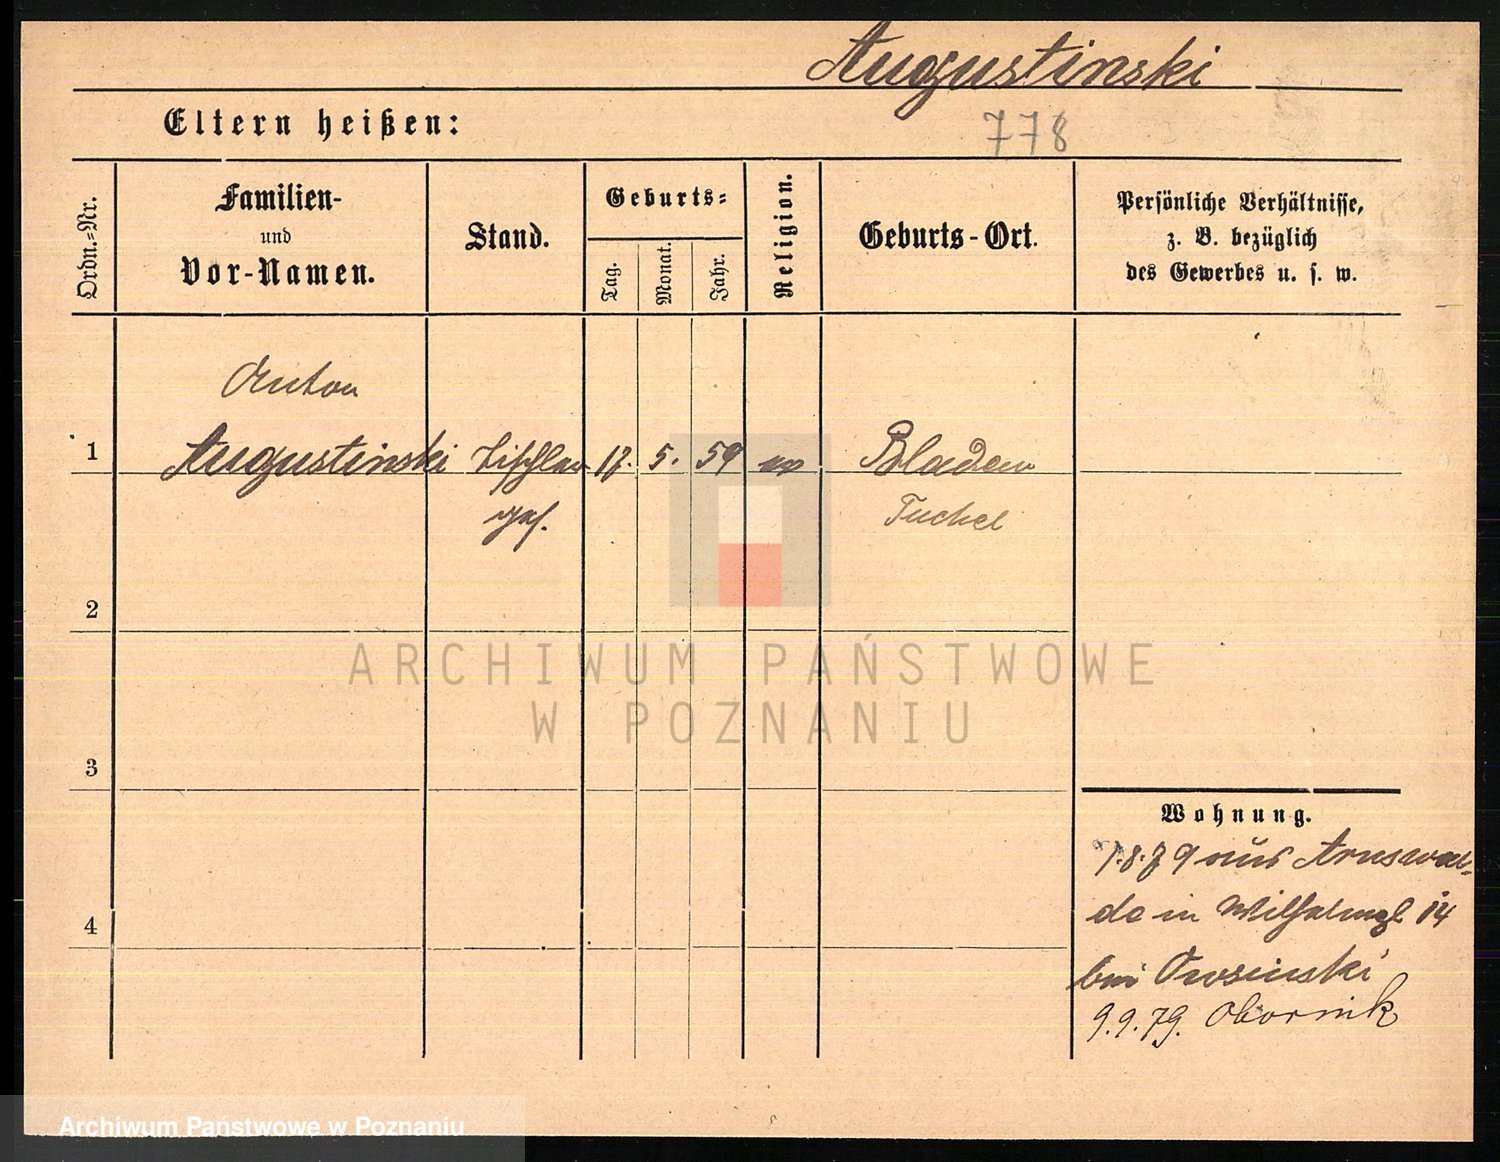 Augustinski
Eltern heißen:
778
Ordn.-Nr.
Familien-
und
Vor-Namen.
Stand.
Geburts-
Tag.
Monat.
Jahr.
Religion.
Geburts-Ort.
Persönliche Verhältnisse,
z. B. bezüglich
des Gewerbes u. s. w.
Anton
1 Augustinski Tischler 17. 5. 59 Bladau
ges. Tuchel
2
ARCHIWUM PAŃSTWOWE
W POZNANIU
3
Wohnung.
1.8.79 aus Arnswal-
de in Wilhelmspl 14
4
bei Owsinski
9.9.79. Obornik
Archiwum Państwowe w Poznaniu